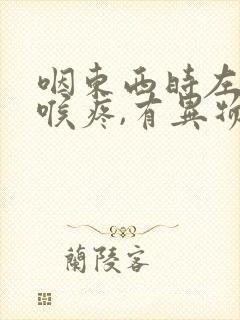 咽東西時左
喉疼,有異物
蘭陵客